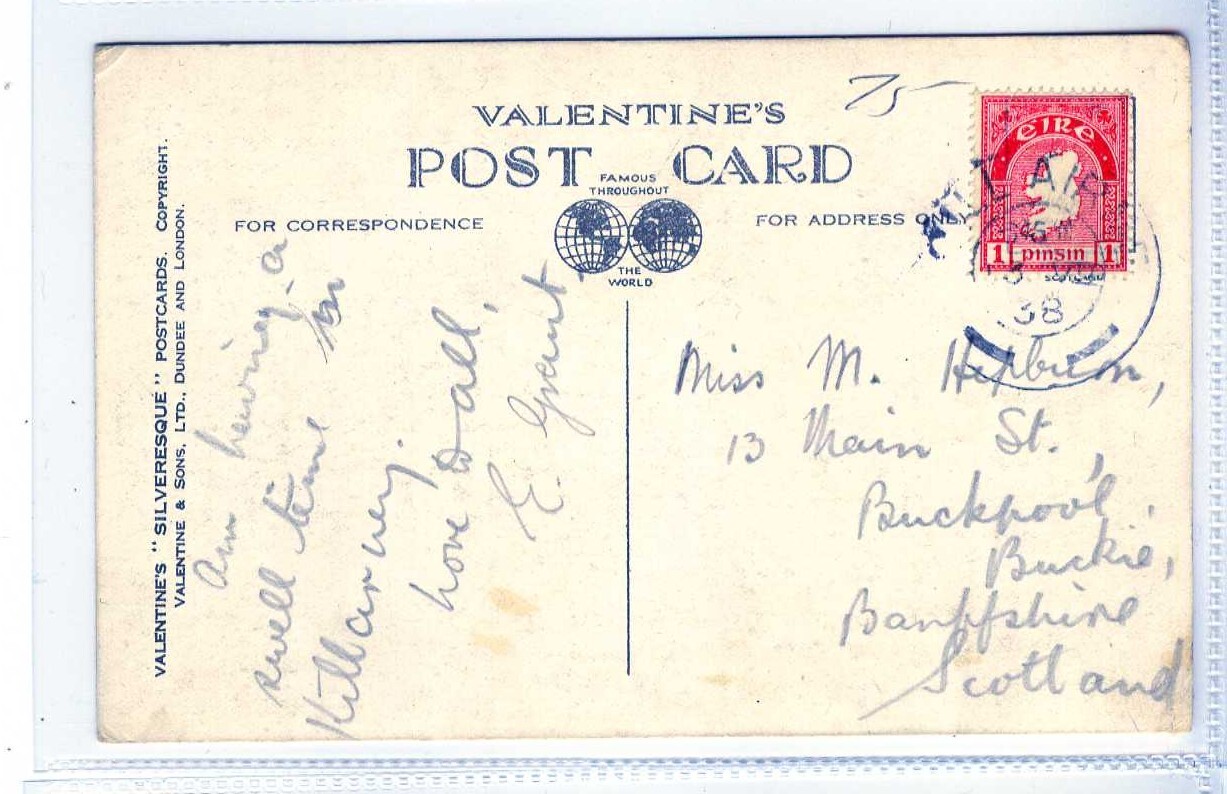 VALENTINE'S
POST CARD
FAMOUS
THROUGHOUT
THE
WORLD
FOR CORRESPONDENCE
FOR ADDRESS ONLY
75
EIRE
1 pinsin 1
38
VALENTINE'S "SILVERESQUE" POSTCARDS. COPYRIGHT.
VALENTINE & SONS, LTD., DUNDEE AND LONDON.
Am having a
swell time in
Killarney.
Love to all,
E. Grant.
Miss M. Hepburn,
13 Main St.,
Buckpool,
Buckie,
Banffshire
Scotland